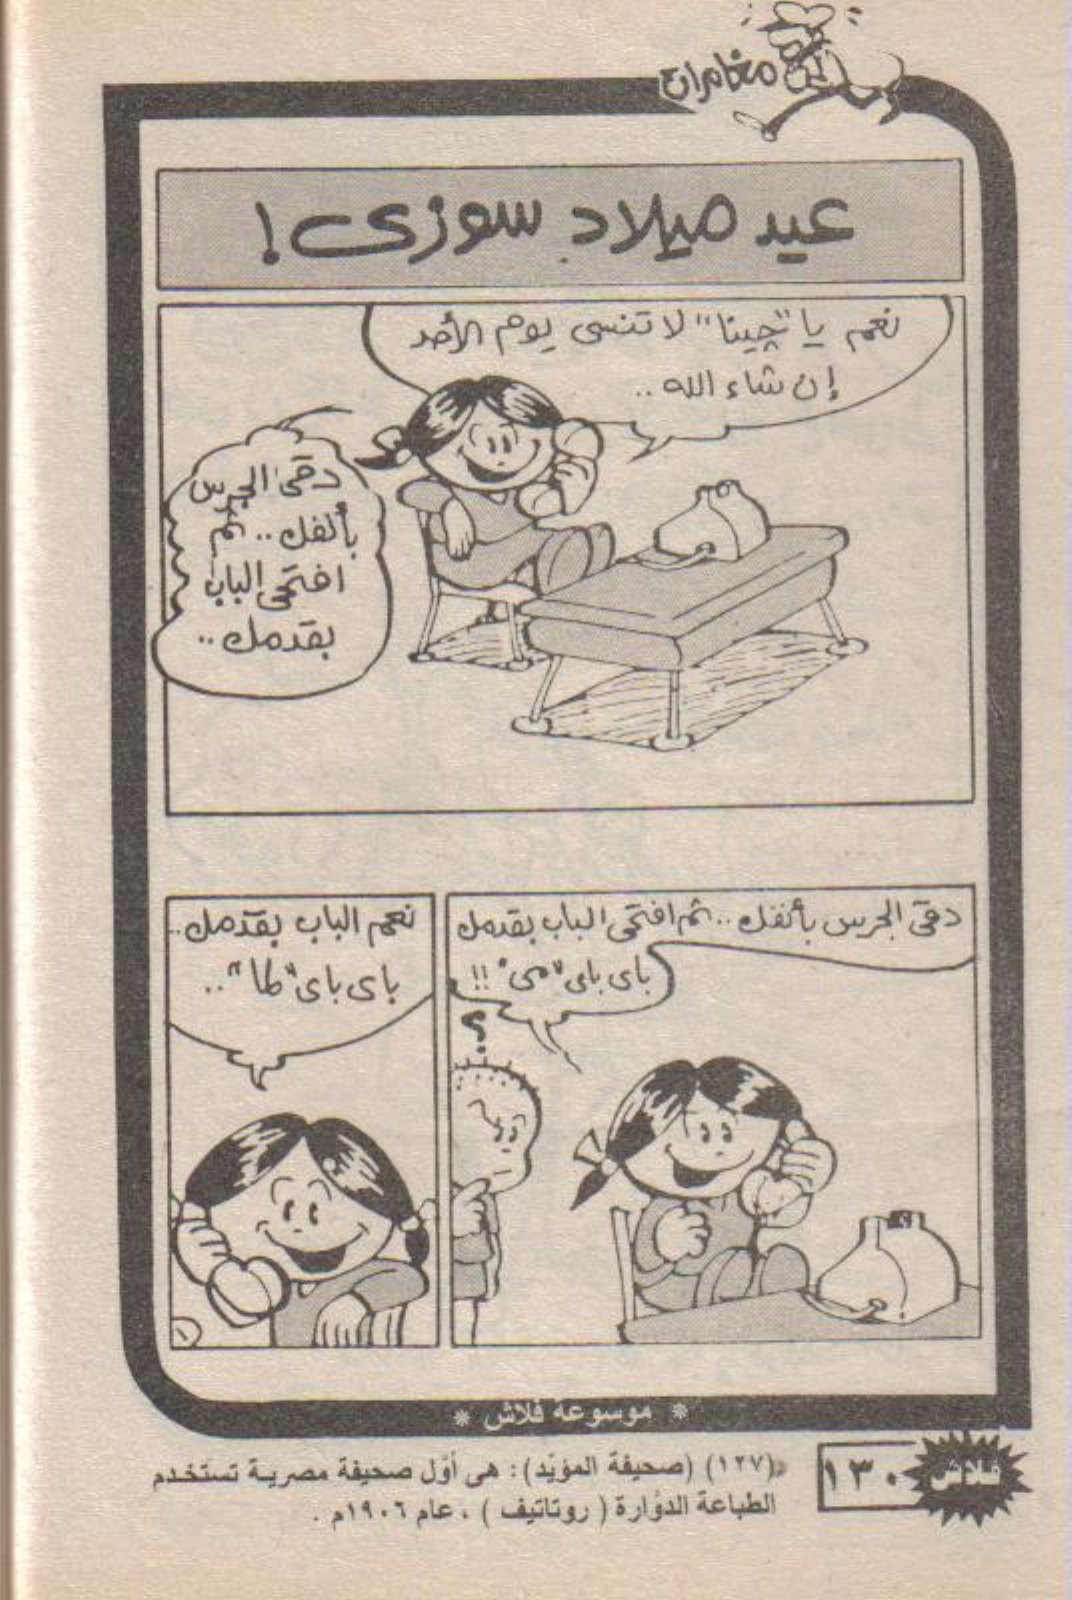 مغامرات
عيد ميلاد سوزى!
نعم يا "چينا" لا تنسى يوم الأحد
إن شاء الله ..
دقى الجرس
بأنفك .. ثم
افتحى الباب
بقدمك ..
دقى الجرس بأنفك .. ثم افتحى الباب بقدمك
باى باى "مى" !!
؟
نعم الباب بقدمك ..
باى باى "لما" ..
١
* موسوعة فلاش *
(١٢٧) (صحيفة المؤيّد): هى أوّل صحيفة مصرية تستخدم
الطباعة الدوّارة ( روتاتيف ) ، عام ١٩٠٦م .
١٣٠
فلاش